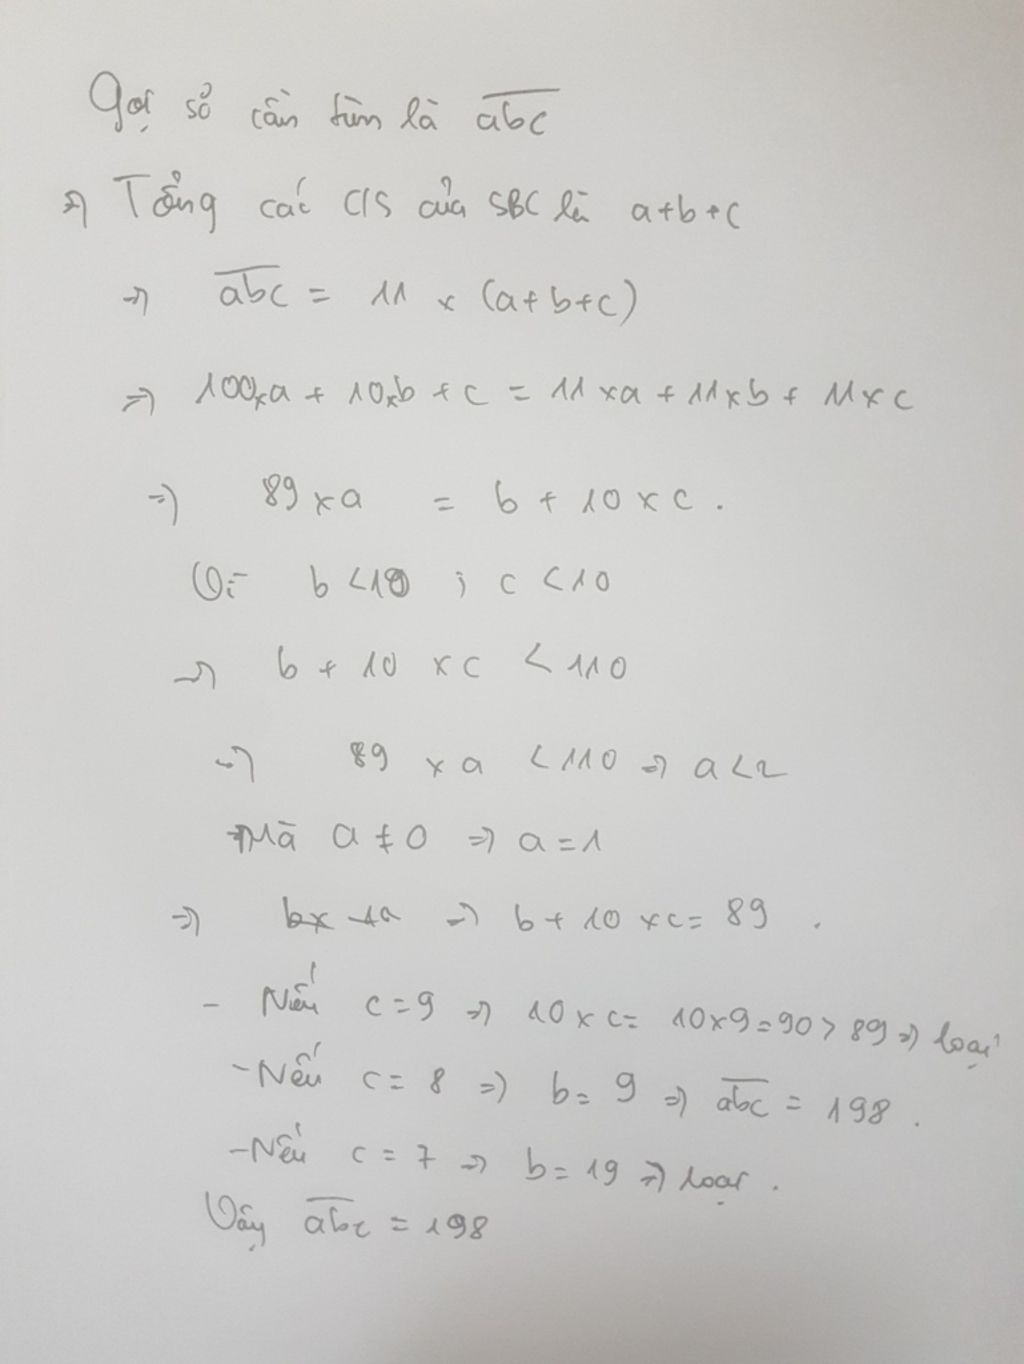 Gọi số cần tìm là abc
=> Tổng các c/s của SBC là a+b+c
=> abc = 11 x (a+b+c)
=> 100xa + 10xb + c = 11xa + 11xb + 11xc
=> 89xa = b + 10xc.
Vì b<10 ; c<10
=> b + 10 xc < 110
=> 89 xa < 110 => a<2
Mà a≠0 => a=1
=> => b + 10 xc = 89.
- Nếu c=9 => 10xc= 10x9=90>89 => loại
- Nếu c= 8 => b= 9 => abc = 198.
- Nếu c = 7 => b= 19 => loại.
Vậy abc = 198